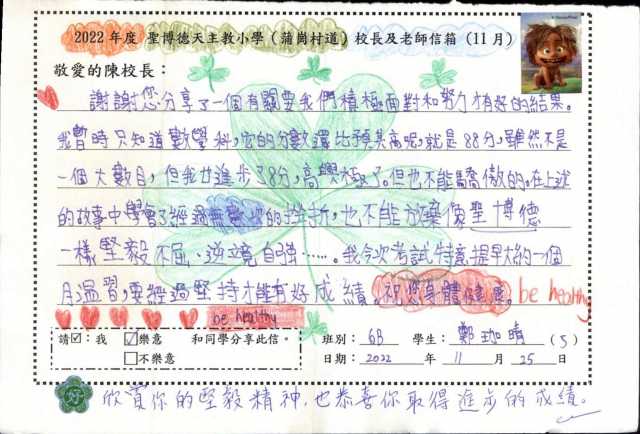 2022年度 聖博德天主教小學(蒲崗村道)校長及老師信箱(11月)
敬愛的陳校長:
謝謝您分享了一個有關要我們積極面對和努力才有好的結果。
我暫時只知道數學科,它的分數還比預其高呢,就是88分,雖然不是
一個大數目,但我廿進步了8分,高興極了。但也不能驕傲的。在上述
的故事中學會了經過無數次的挫折,也不能放棄像聖博德
一樣堅毅不屈、逆境自強……。我今次考試特意提早大約一個
月溫習,要經過堅持才能有好成績。祝您身體健康。be healthy
be healthy
請☑:我 ☑樂意 和同學分享此信。 班別: 6B 學生: 鄭珈晴 (5)
□不樂意 日期: 2022 年 11 月 25 日
好 欣賞你的堅毅精神,也恭喜你取得進步的成績。